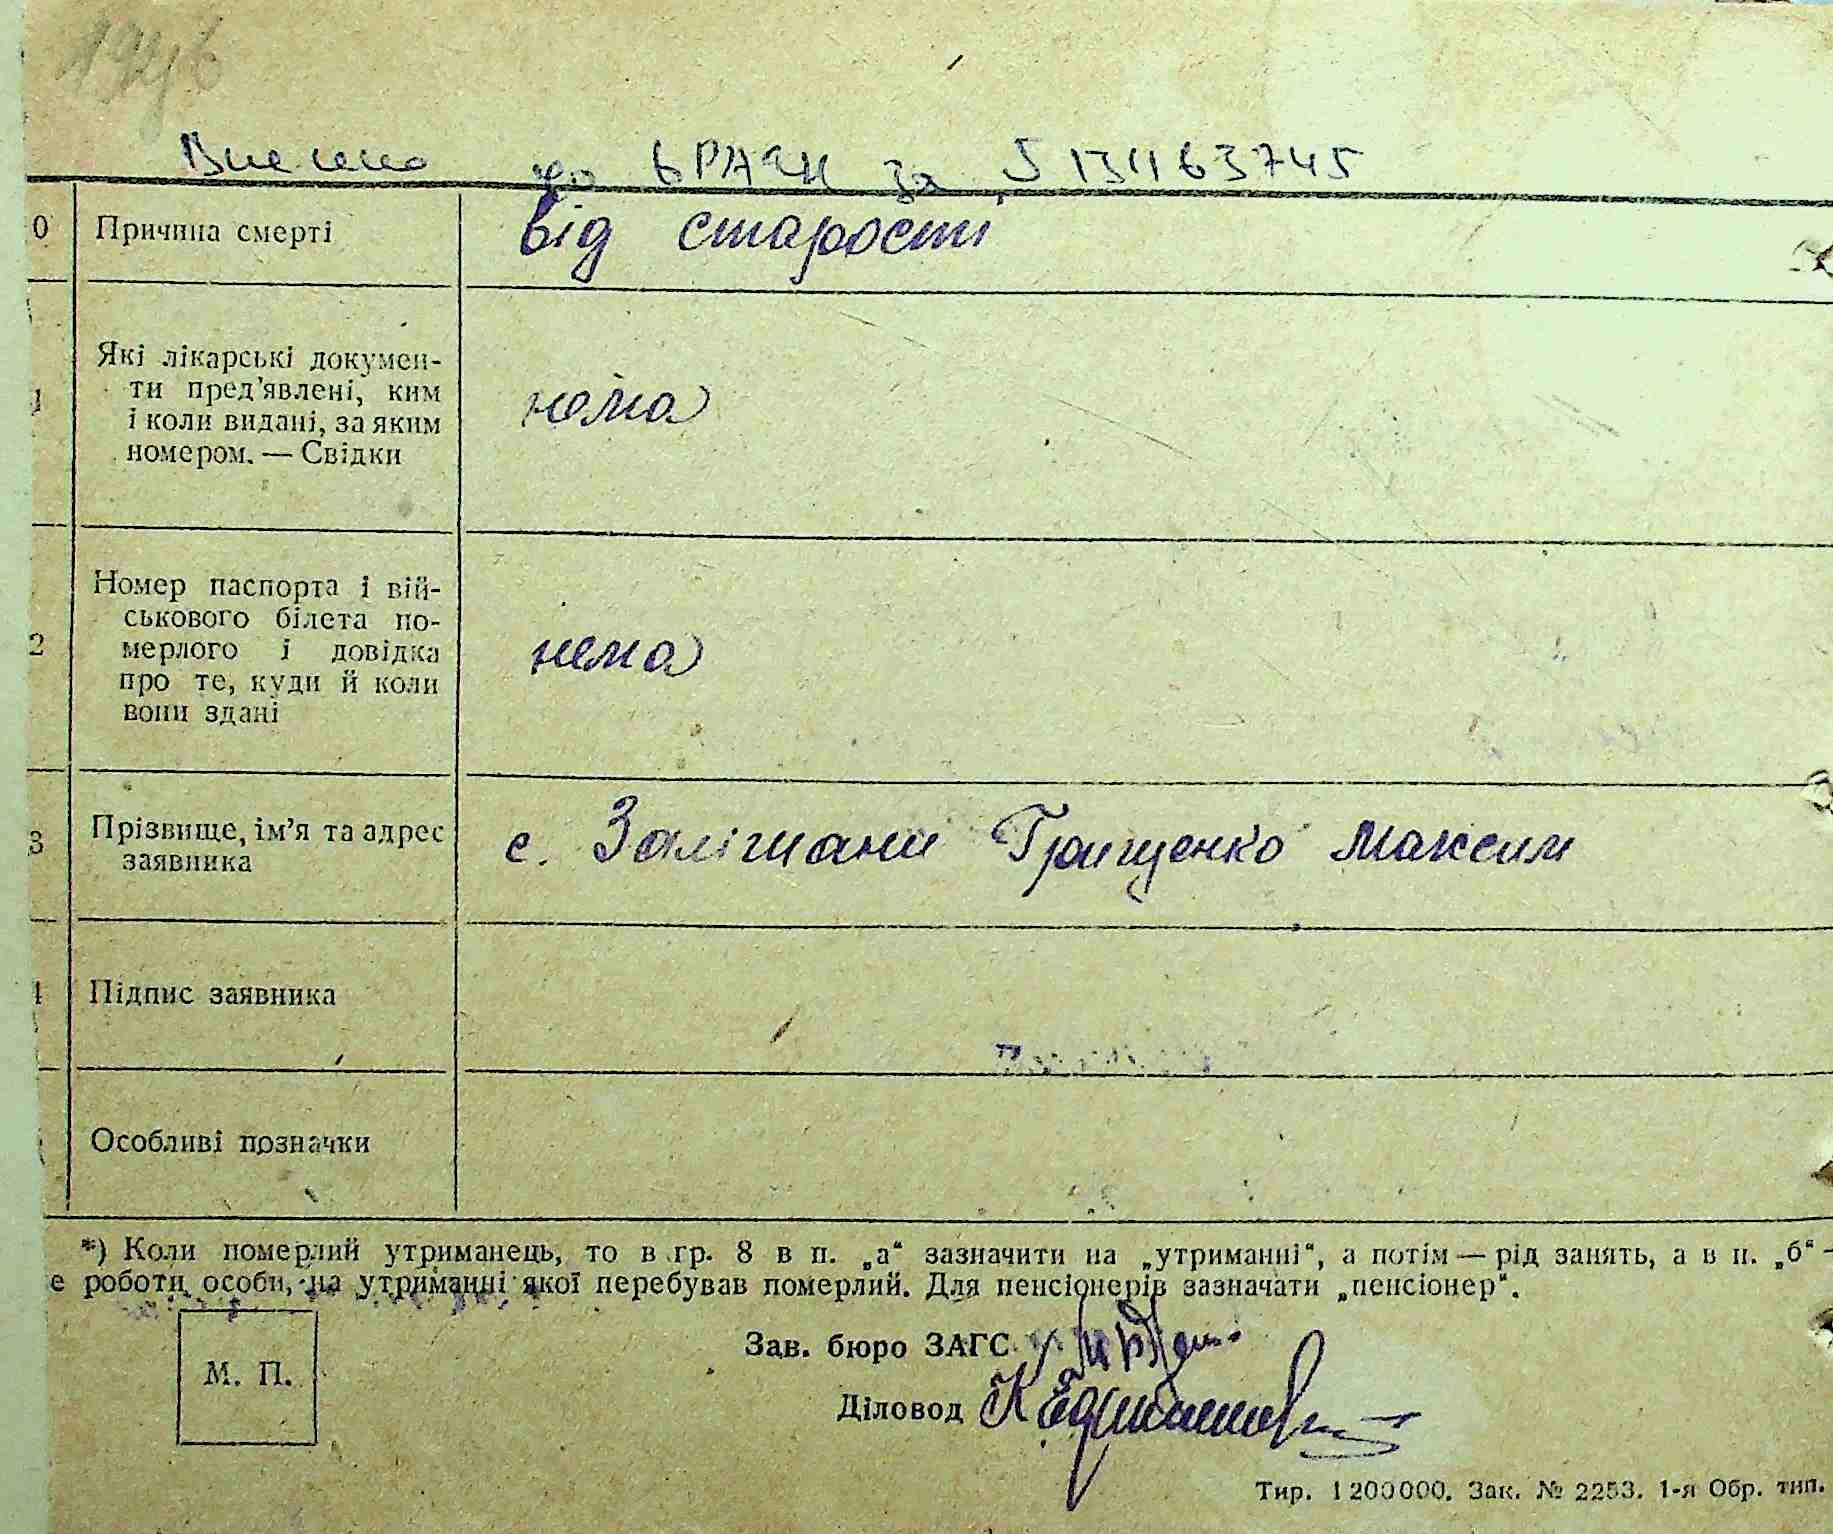 1946
Внесено до ЕРАЦН за 5131163745
0 Причина смерті від старости
1 Які лікарські докумен-
ти пред'явлені, ким
і коли видані, за яким
номером. — Свідки
нема
Номер паспорта і вій-
ськового білета по-
2 мерлого і довідка
про те, куди й коли
вони здані
нема
3 Прізвище, ім'я та адрес
заявника
с. Залізнани Грищенко Максим
Підпис заявника
Особливі позначки
*) Коли померлий утриманець, то в гр. 8 в п. „а“ зазначити на „утриманні“, а потім — рід занять, а в п. „б“ –
е роботи особи, на утриманні якої перебував померлий. Для пенсіонерів зазначати „пенсіонер“.
М. П.
Зав. бюро ЗАГС
Діловод
Тир. 1 200 000. Зак. № 2253. 1-я Обр. тип.